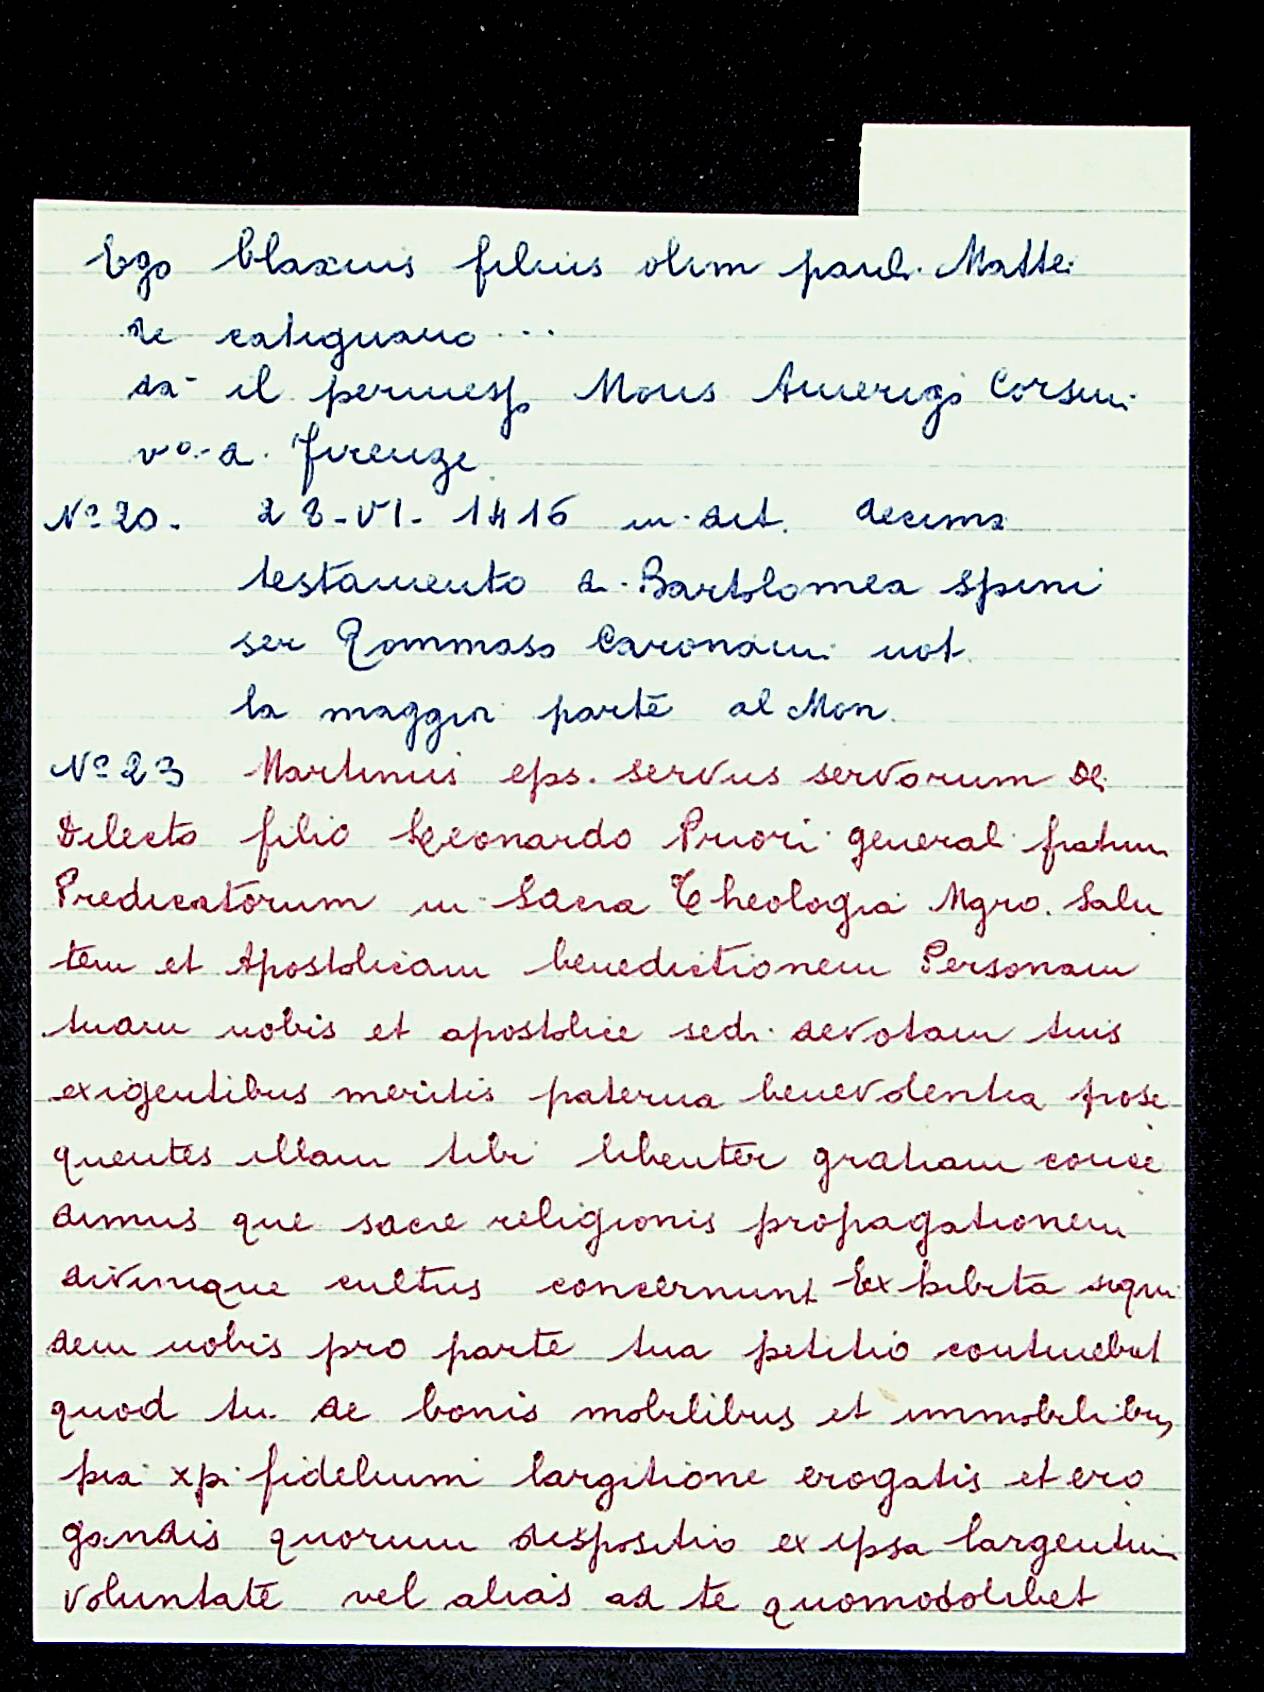 Ego blaxius filius olim pauli Mattei
de catignano ...
dà il permesso Mons Amerigo Corsini
vo. di Firenze
No 20. 28-VI-1416 in dit. decima
testamento di Bartolomea Spini
ser Tommaso Caronami not
la maggior parte al Mon.
No 23 Martinus eps. servus servorum Dei
Dilecto filio Leonardo Priori generali fratrum
Predicatorum in Sacra Theologia Mgro. Salu
tem et Apostolicam benedictionem Personam
tuam nobis et apostolice sedi devotam tuis
exigentibus meritis paterna benevolentia prose
quentes illam tibi libenter gratiam conce
dimus que sacre religionis propagationem
divinique cultus concernunt Exhibita siqui
dem nobis pro parte tua petitio continebat
quod tu de bonis mobilibus et immobilibus
pia xpi fidelium largitione erogatis et ero
gandis quorum dispositio ex ipsa largentium
voluntate vel alias ad te quomodolibet